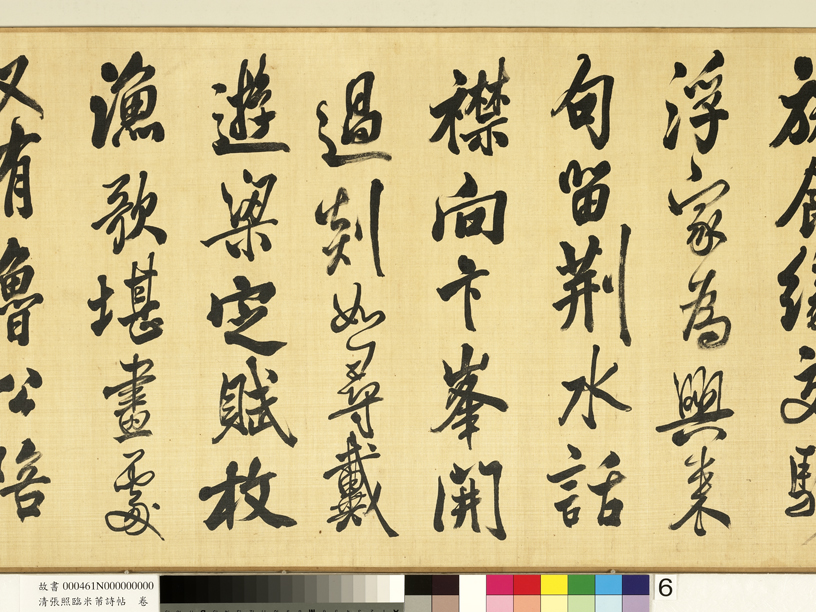 旅食緣交駐
浮家為興来
句留荆水話
襟向卞峯開
過剡如尋戴
遊梁定賦枚
漁歌堪畫處
又有魯公陪
故書 000461N000000000
清張照臨米芾詩帖 卷
6